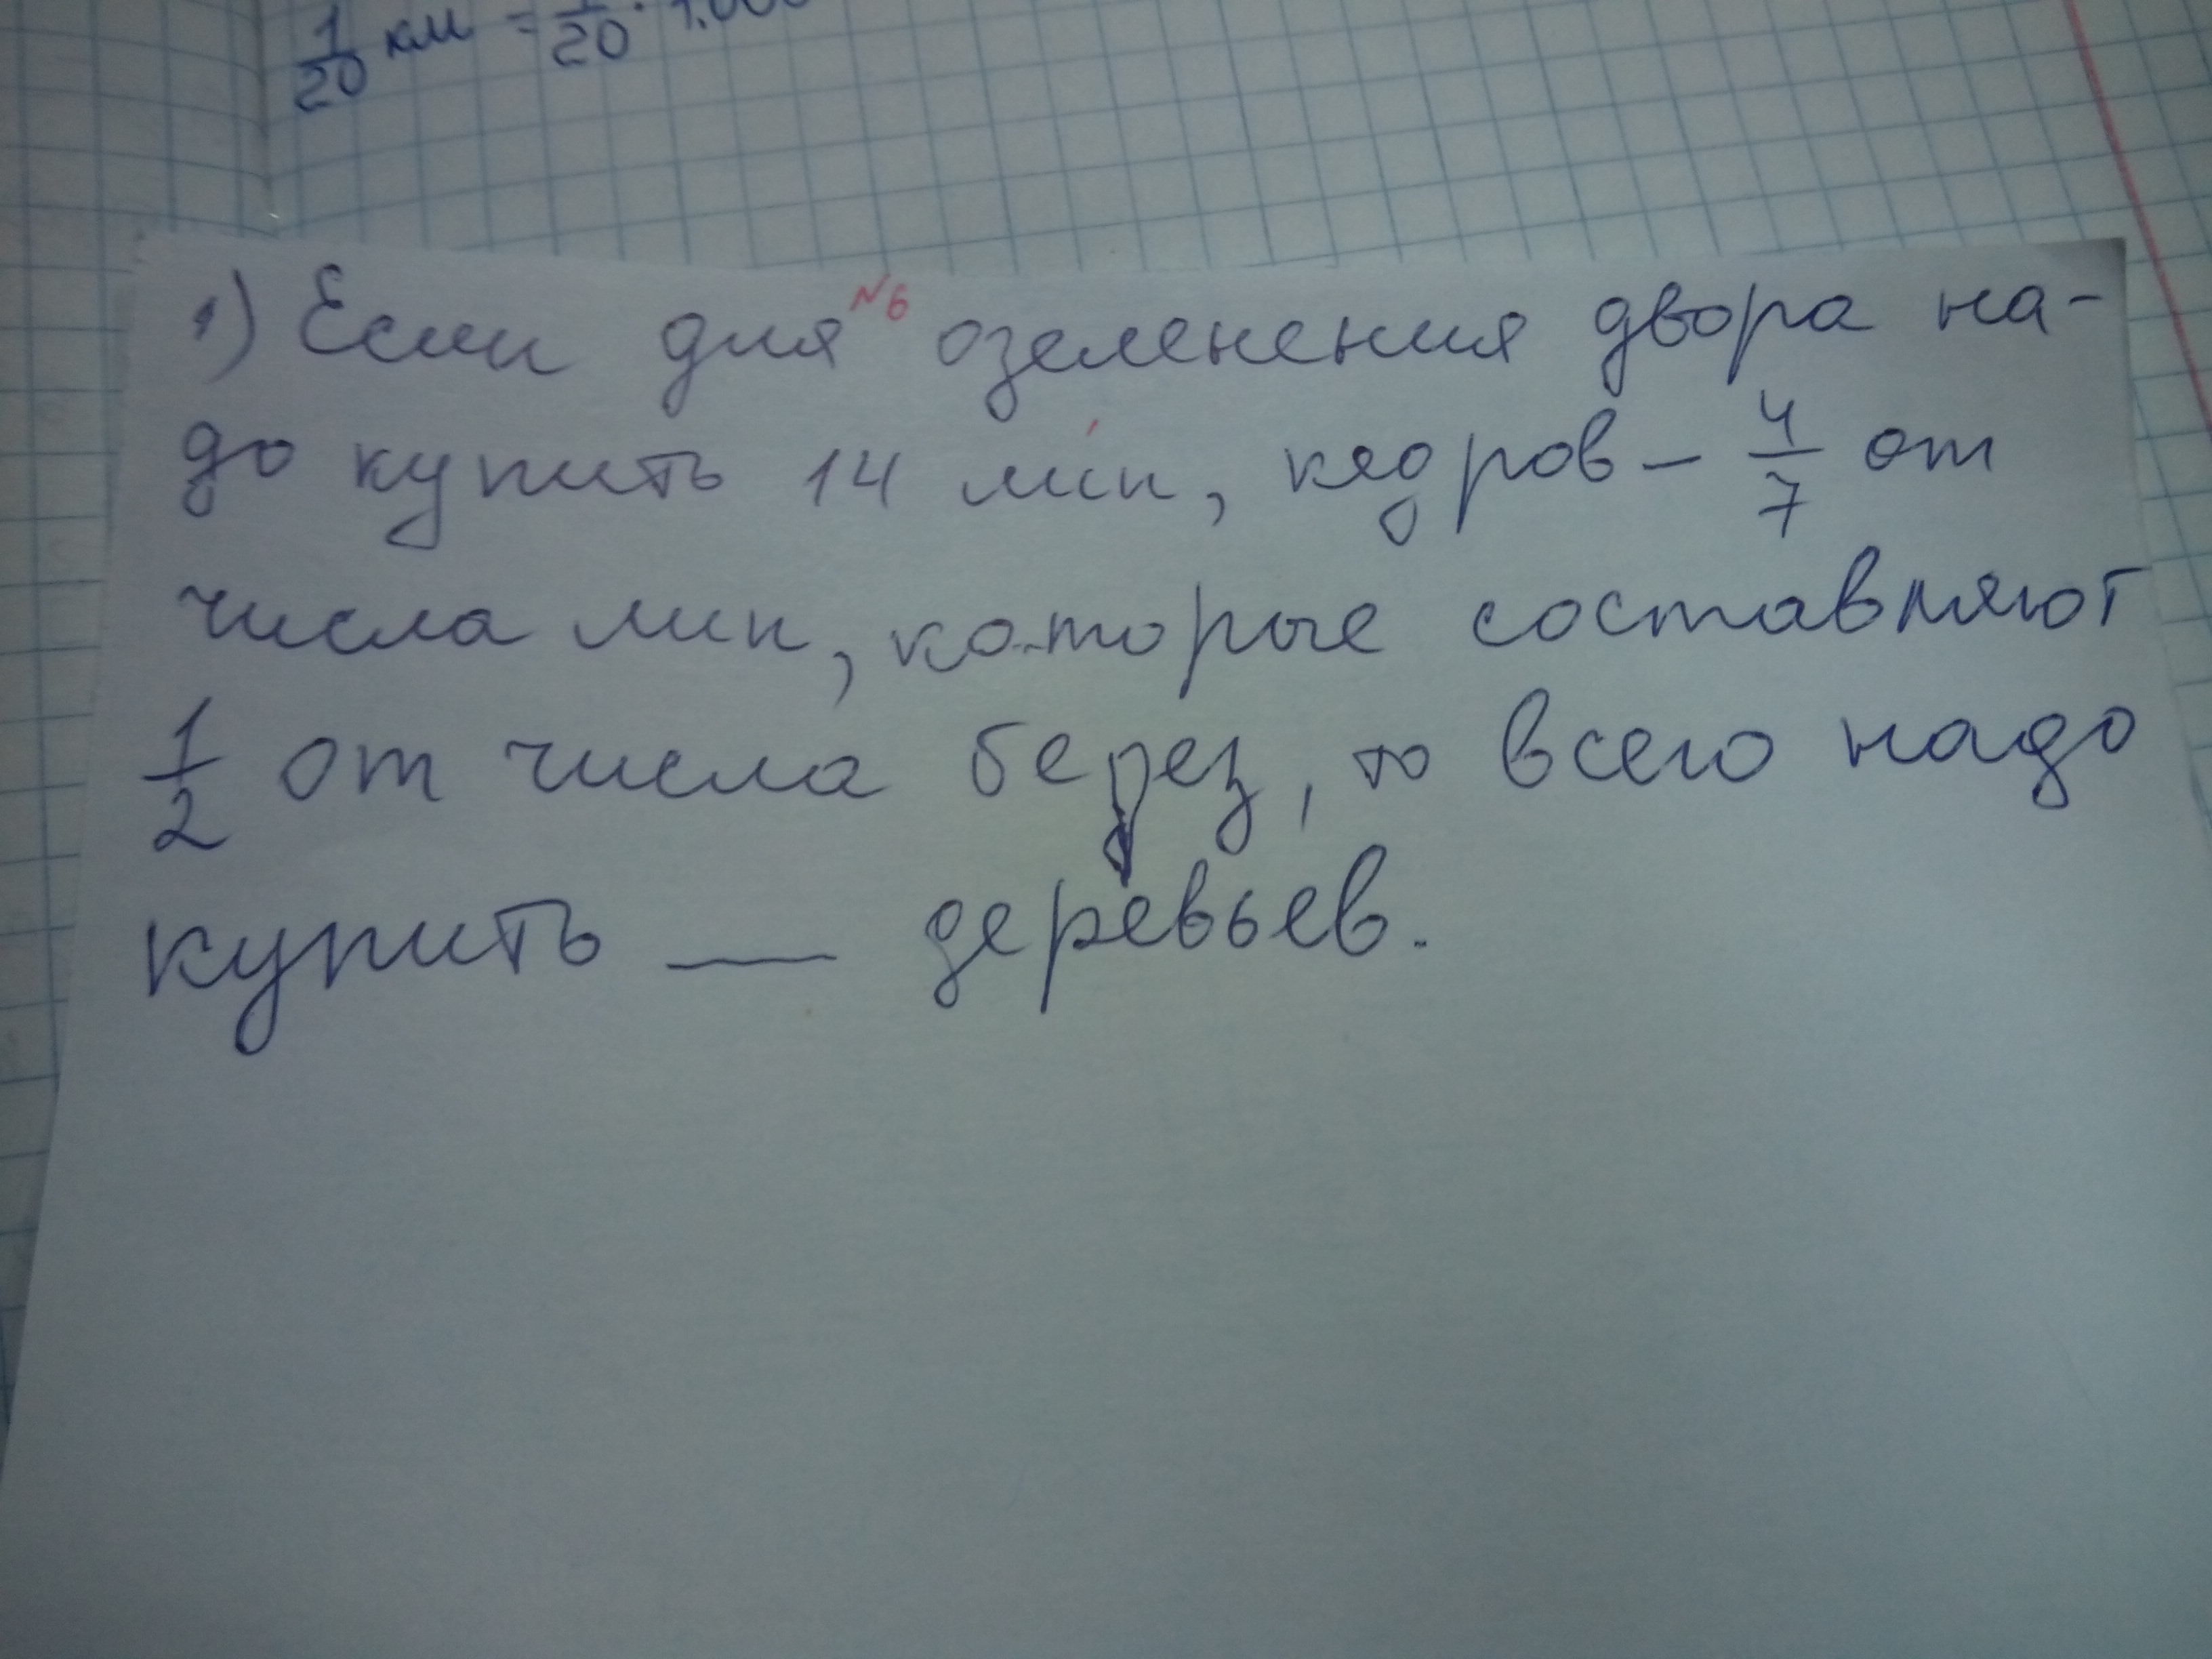 1/20 км = 1/20 · 1.000
№6
1) Если для озеленения двора на-
до купить 14 лип, кедров – 4/7 от
числа лип, которые составляют
1/2 от числа берез, то всего надо
купить ___ деревьев.